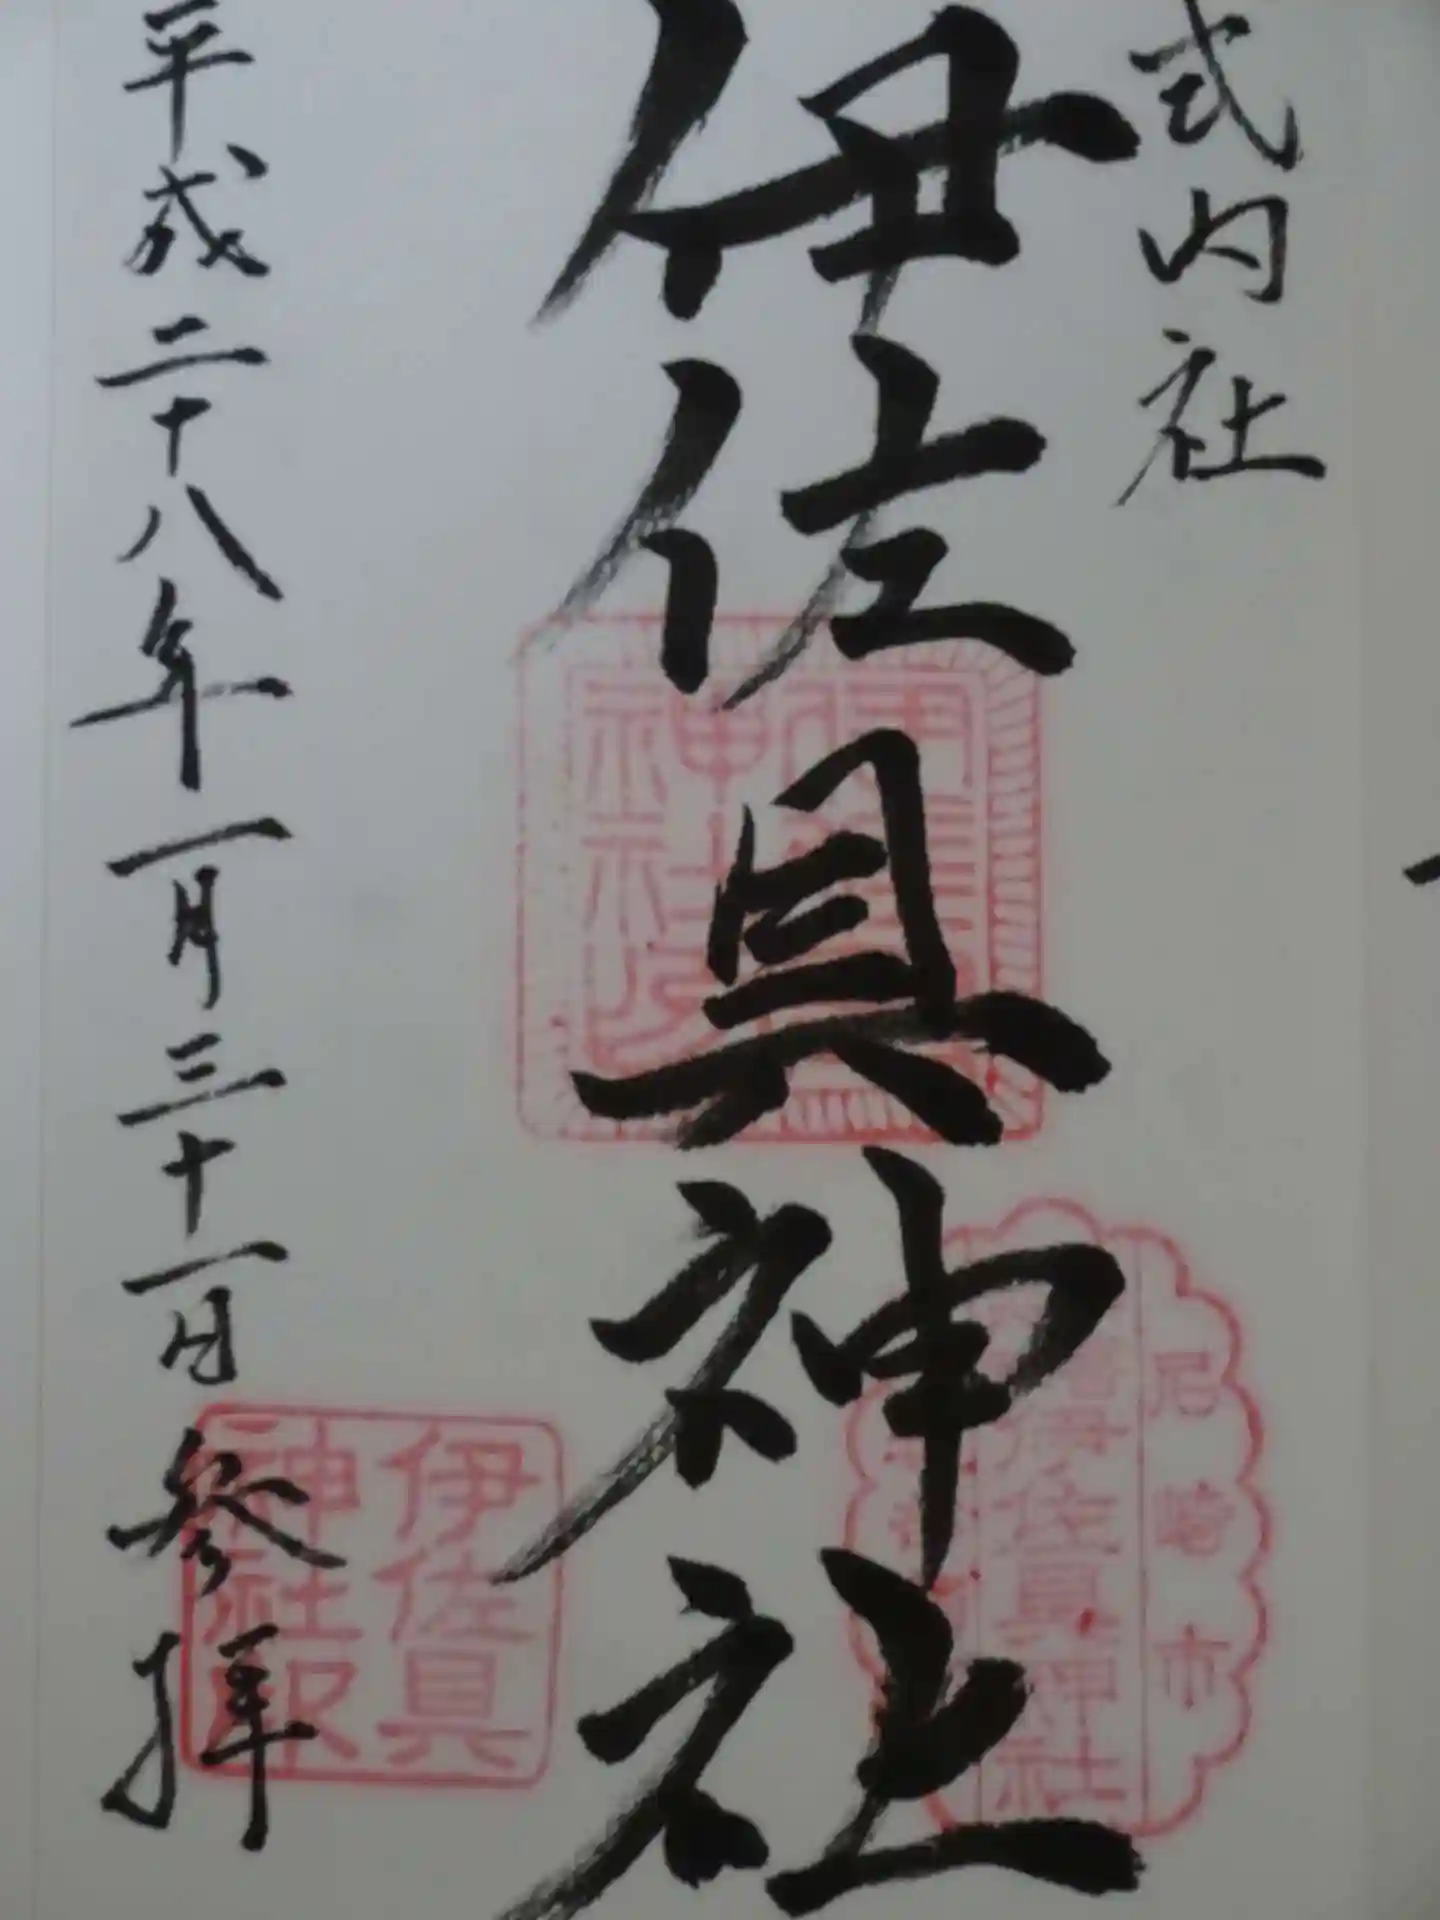 式内社
伊佐具神社
平成二十八年一月三十一日 参拝
伊佐具
神社印
尼崎市
伊佐具神社